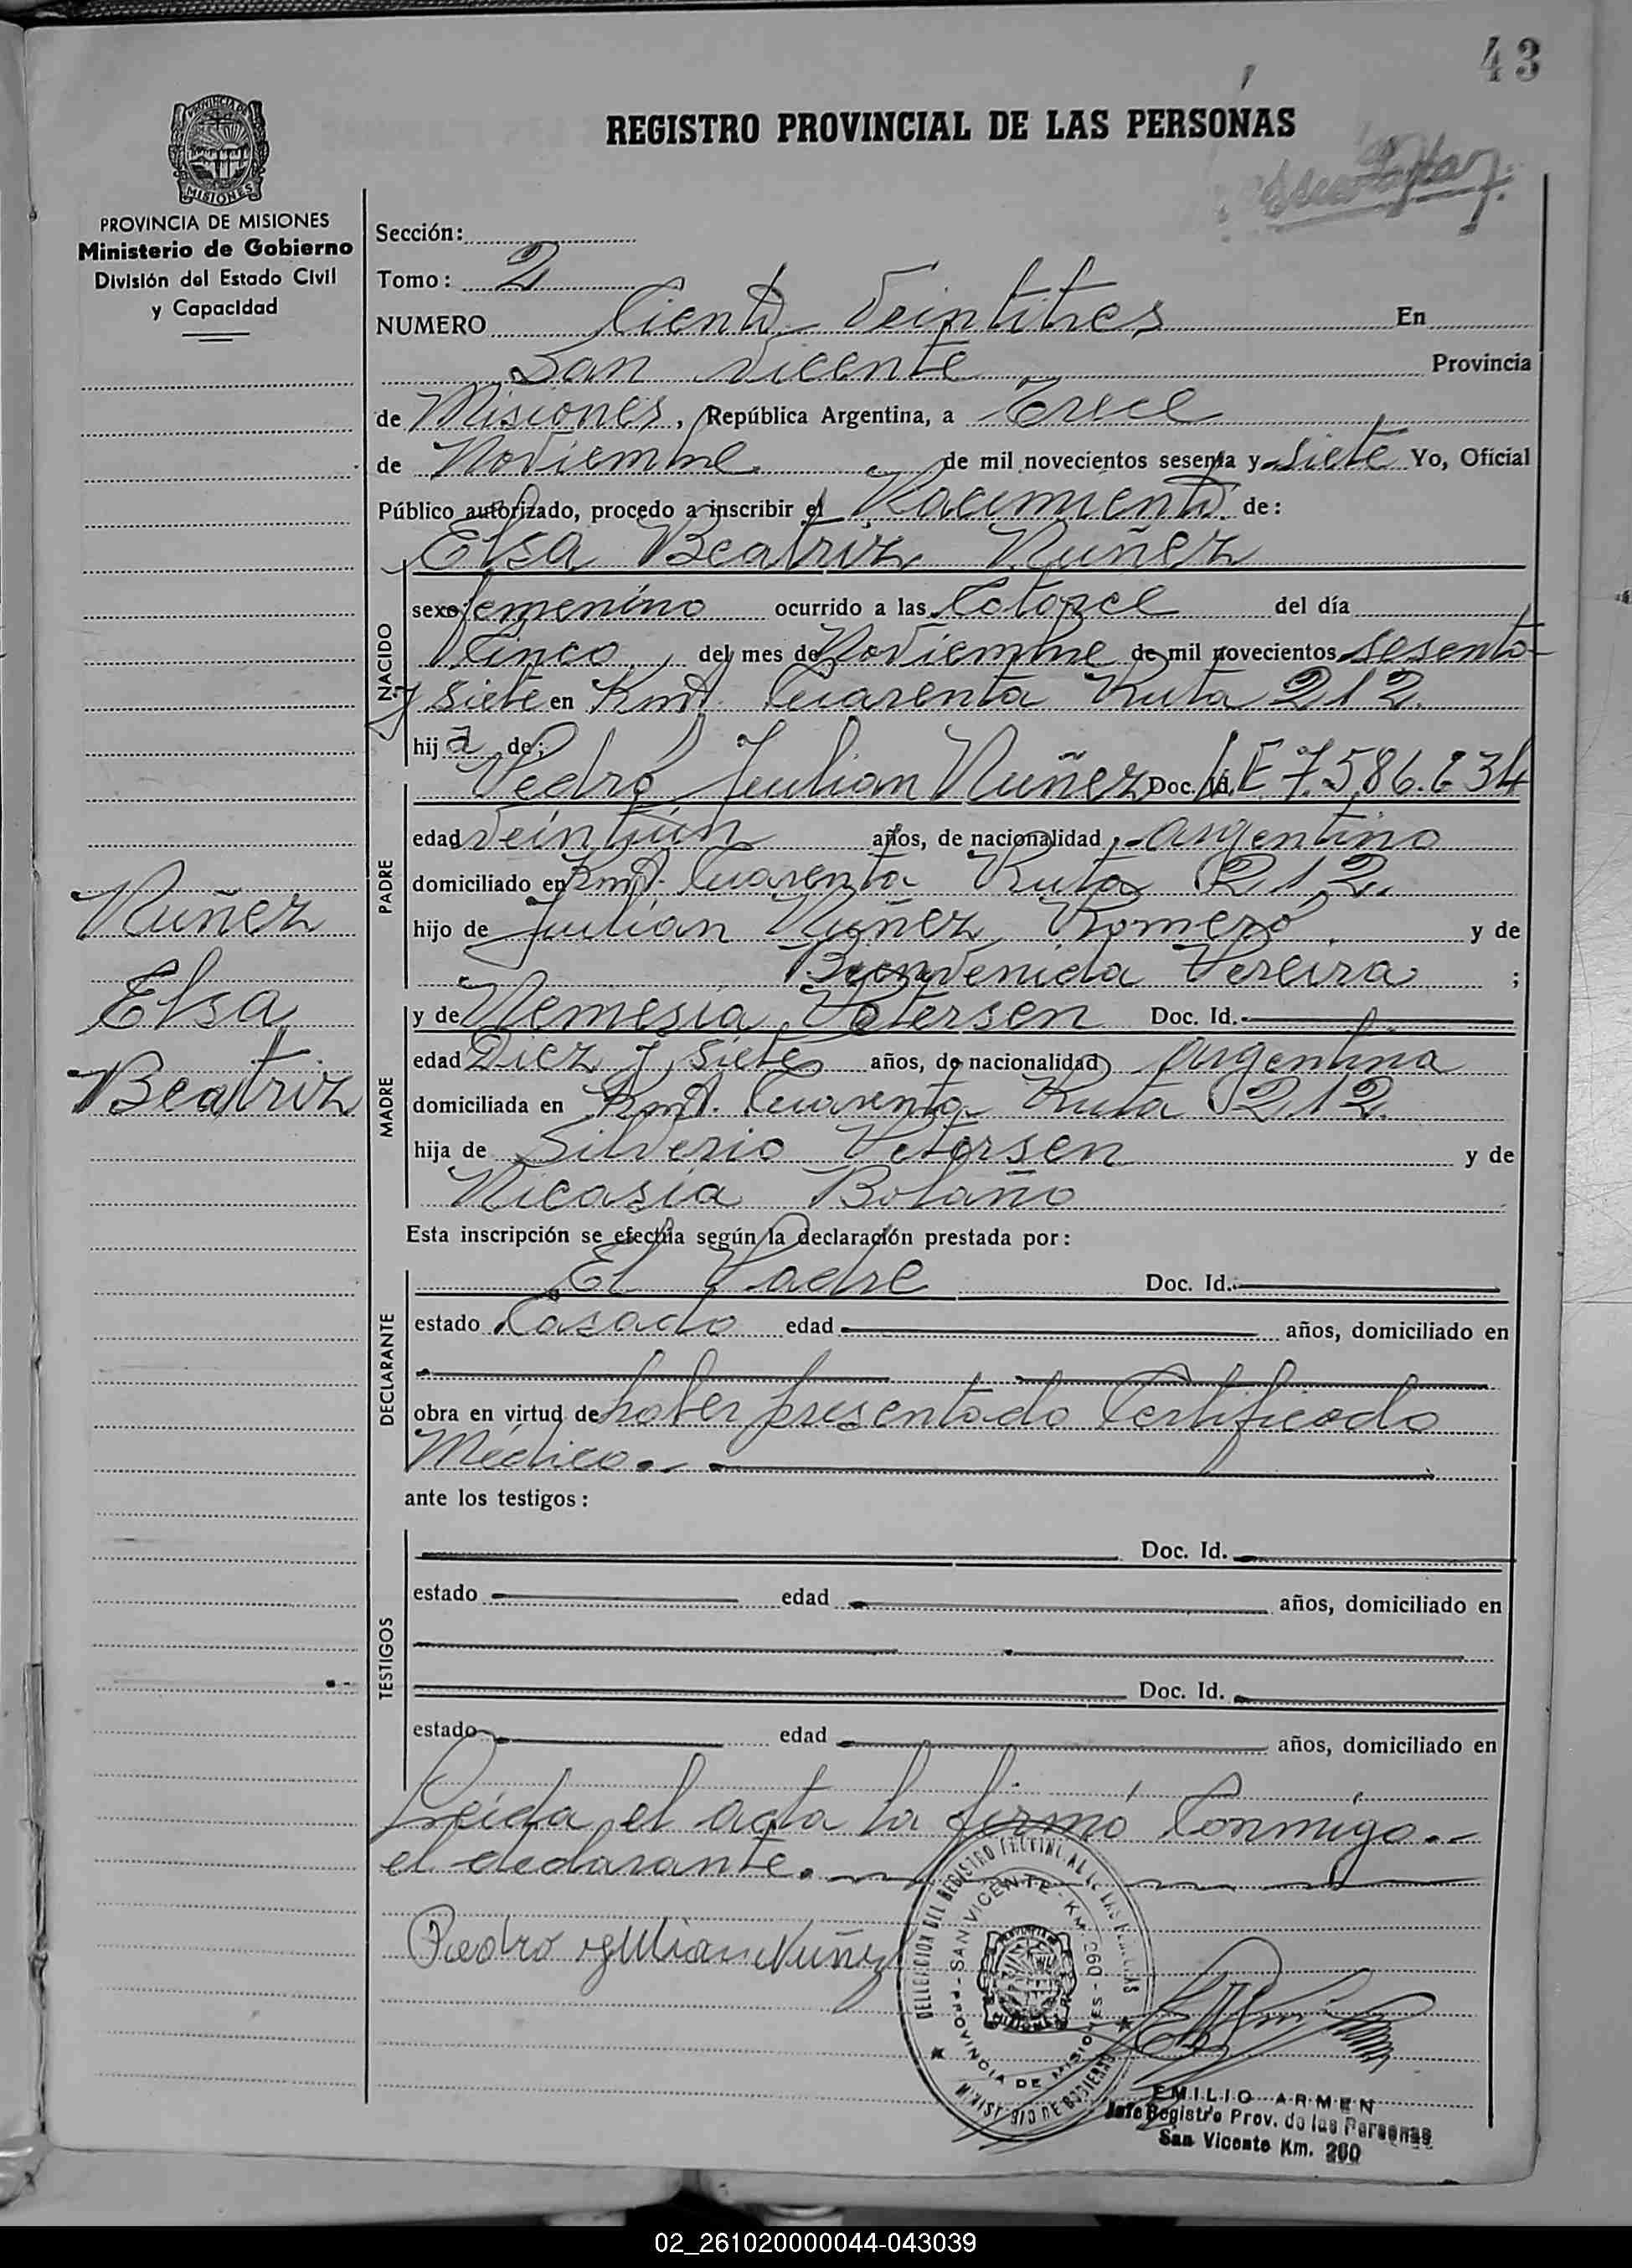 43
REGISTRO PROVINCIAL DE LAS PERSONAS
PROVINCIA DE MISIONES
MISIONES
PROVINCIA DE MISIONES
Ministerio de Gobierno
División del Estado Civil
y Capacidad
Sección:
Tomo: 2
NUMERO Ciento Veintitres En
San Vicente Provincia
de Misiones, República Argentina, a Trece
de Noviembre de mil novecientos sesenta y siete Yo, Oficial
Público autorizado, procedo a inscribir el Nacimiento de:
Elsa Beatriz Nuñez
NACIDO
sexo femenino ocurrido a las Catorce del día
Cinco del mes de Noviembre de mil novecientos sesenta
y siete en Kmt. Cuarenta Ruta 212.
hija de:
PADRE
Pedro Julian Nuñez Doc. Id. L.E 7.586.634
edad veintiún años, de nacionalidad argentino
domiciliado en Kmt. Cuarenta Ruta 212.
hijo de Julián Nuñez Romero y de
Bienvenida Pereira ;
MADRE
y de Nemesia Petersen Doc. Id.
edad Diez y siete años, de nacionalidad argentina
domiciliada en Kmt. Cuarenta Ruta 212.
hija de Silverio Petersen y de
Nicasia Bolaño
Nuñez
Elsa
Beatriz
Esta inscripción se efectúa según la declaración prestada por:
DECLARANTE
El Padre Doc. Id.
estado Casado edad años, domiciliado en
obra en virtud de haber presentado Certificado
Médico.
ante los testigos:
TESTIGOS
Doc. Id.
estado edad años, domiciliado en
Doc. Id.
estado edad años, domiciliado en
Leída el acta la firmó Conmigo.
el declarante.
Pedro Julian Nuñez
DELEGACION DEL REGISTRO PROVINCIAL DE LAS PERSONAS
SAN VICENTE - KM 260 - PROVINCIA DE MISIONES
MINISTERIO DE GOBIERNO
EMILIO ARMEN
Jefe Registro Prov. de las Personas
San Vicente Km. 260
02_261020000044-043039